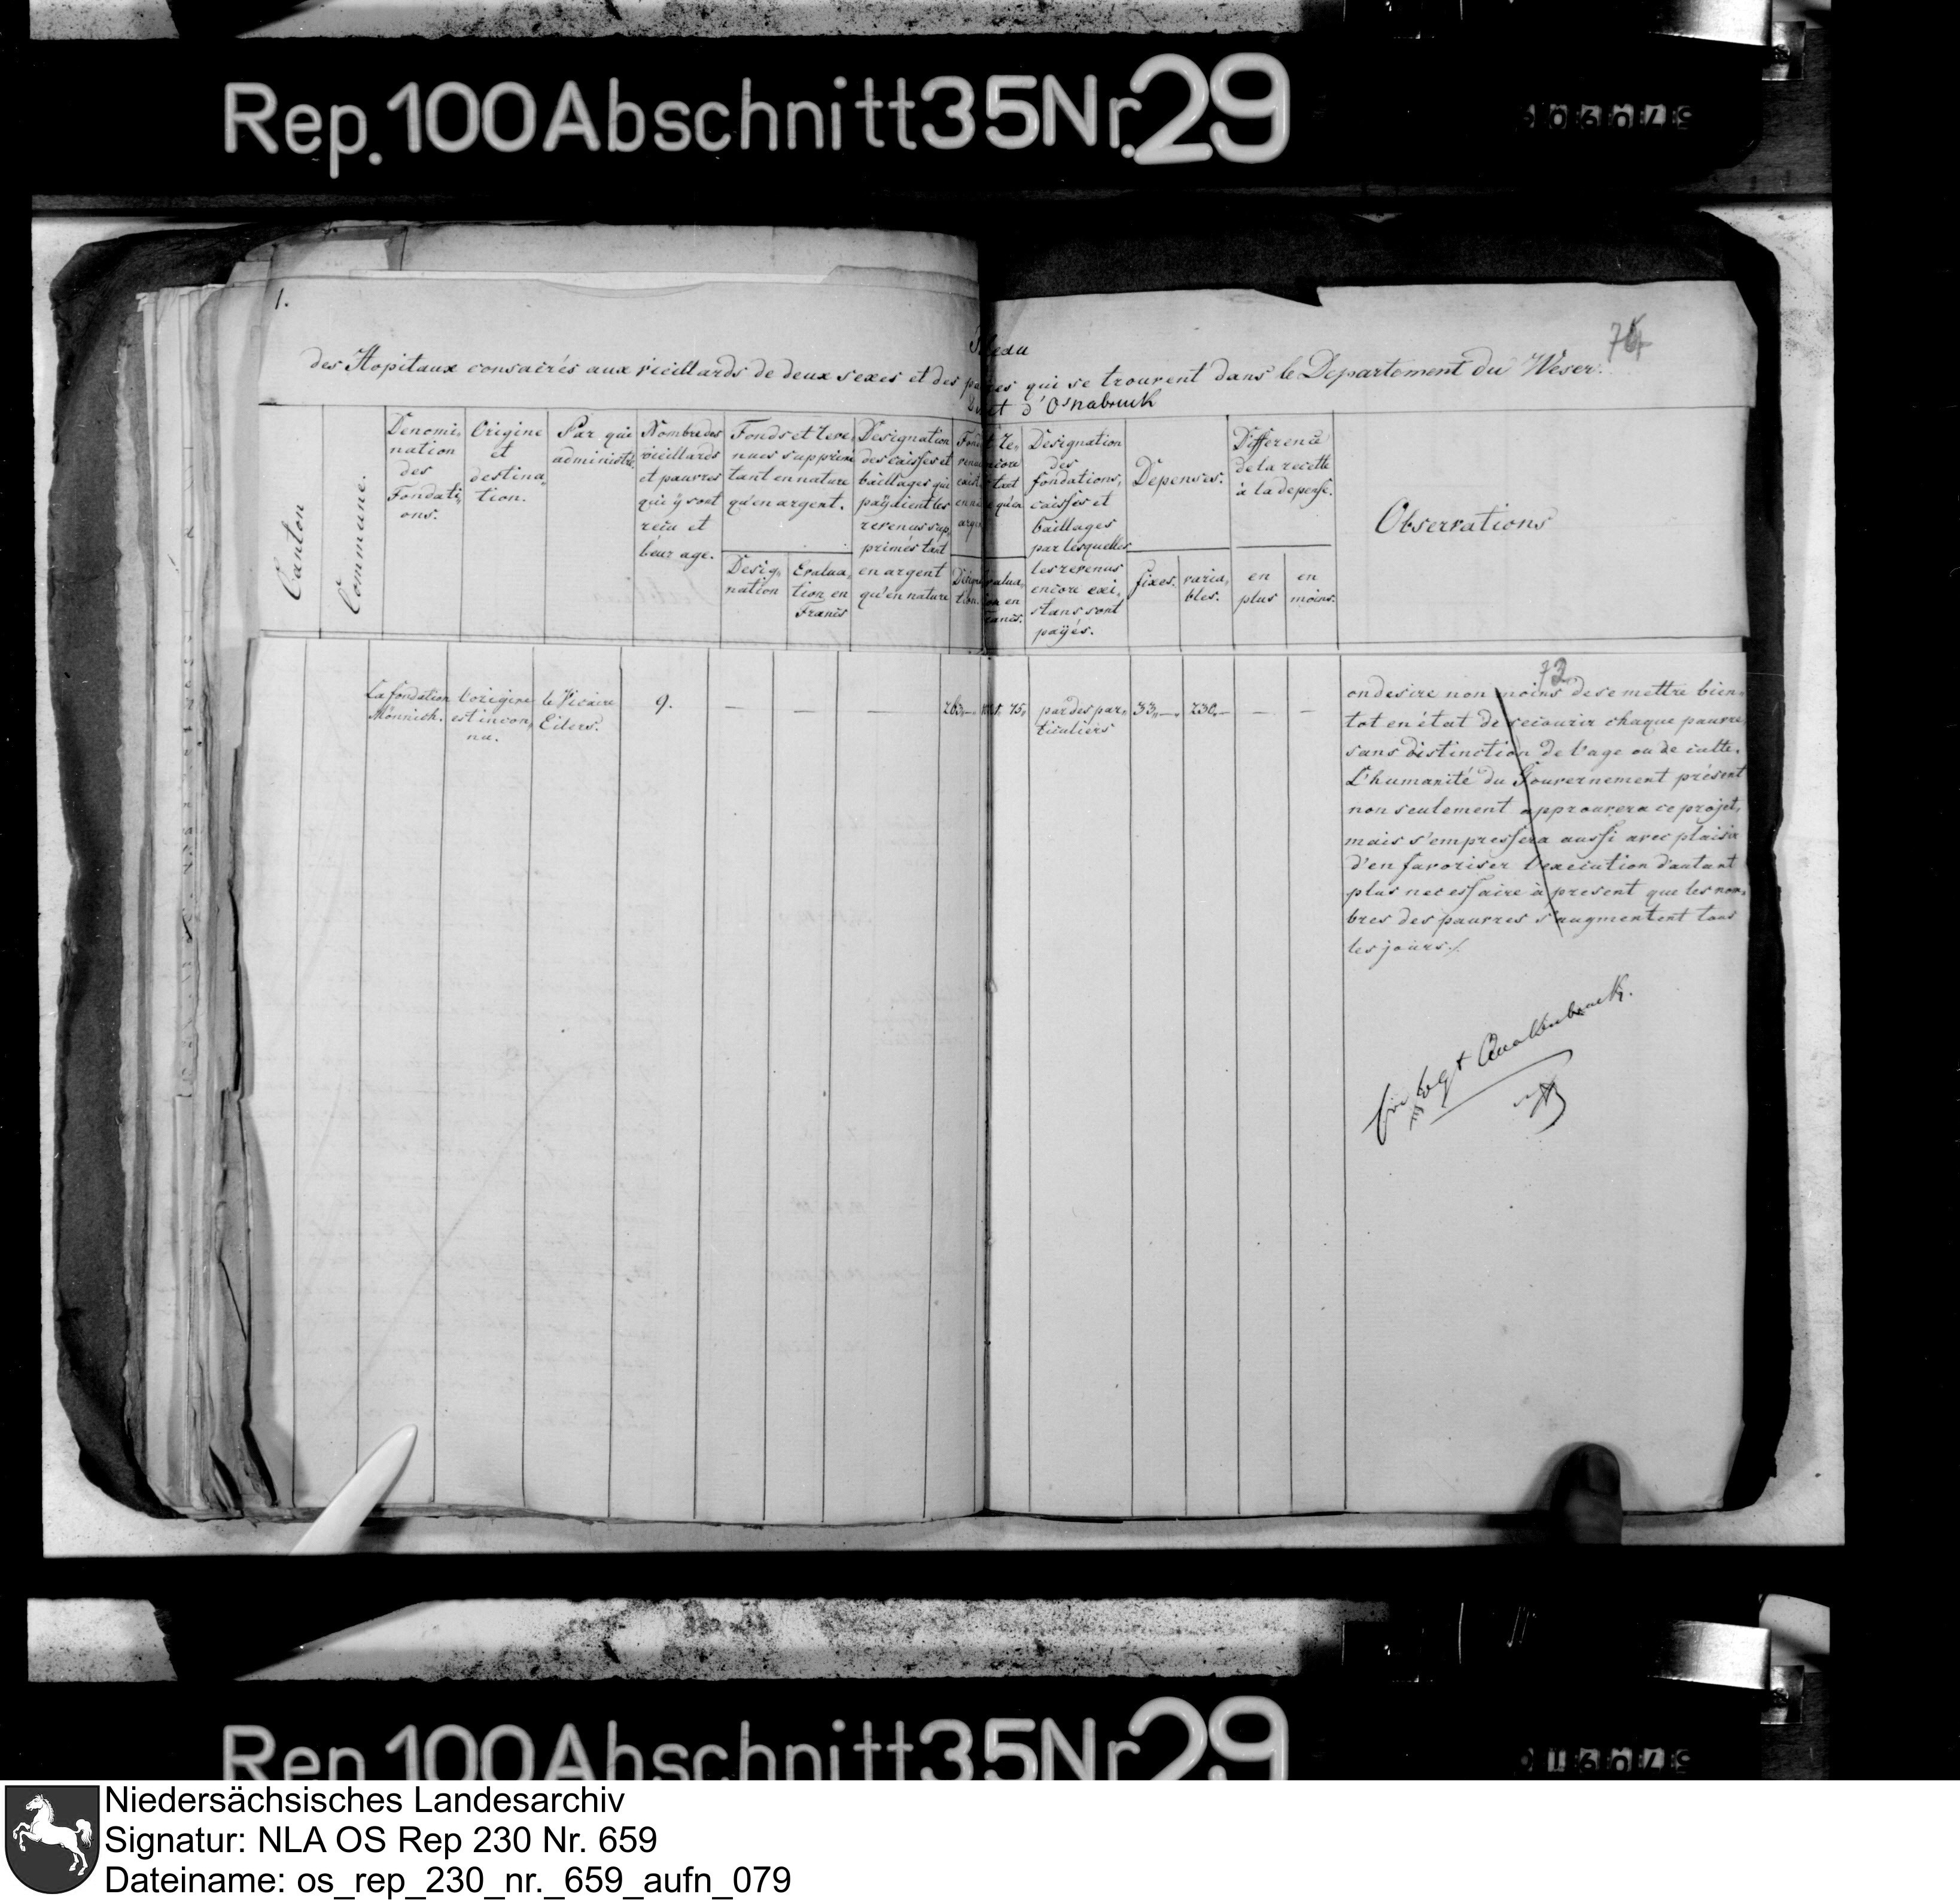 Rep. 100 Abschnitt 35 Nr. 29
1.
des Hopitaux consacrés aux vieillards de deux sexes et des qui se trouvent dans le Departement du Weser.
d'Osnabruck
Canton
Commune.
Denomi,
nation
des
Fondati,
ons.
Origine
et
destina,
tion.
Par qui
administré.
Nombre des
vieillards
et pauvres
qui y sont
recu et
leur age.
Fonds et reve,
nues supprimé
tant en nature
qu'en argent.
Desig,
nation
Evalua,
tion en
Francs
Designation
des caisses et
baillages qui
paÿaient les
revenus sup,
primés tant
en argent
qu'en nature
Designation
des
fondations,
caisses et
baillages
par lesquelles
les revenus
encore exi,
stans sont
paÿés.
Depenses.
fixes.
varia,
bles.
Difference
de la recette
à la depense.
en
plus
en
moins.
Observations
La fondation
Mönnich.
l'origine
est incon,
nu.
le Vicaire
Eilers.
9.
— — —
par des par,
ticuliers
33,—.
230,—
— —
73
on desire non moins de se mettre bien,
tot en état de secourir chaque pauvre,
sans distinction de l'age ou de culte.
L'humanité du Gouvernement présent
non seulement approuvera ce projet,
mais s'empressera aussi avec plaisir
d'en favoriser l'execution d'autant
plus necessaire à present que les nom,
bres des pauvres s'augmentent tous
les jours./.
Rep. 100 Abschnitt 35 Nr. 29
Niedersächsisches Landesarchiv
Signatur: NLA OS Rep 230 Nr. 659
Dateiname: os_rep_230_nr._659_aufn_079